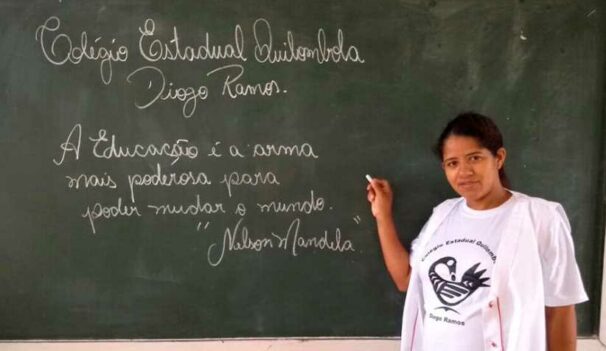 Colégio Estadual Quilombola
Diogo Ramos.
A Educação é a arma
mais poderosa para
poder mudar o mundo.
"Nelson Mandela"
Colégio Estadual Quilomb
Diogo Ramos